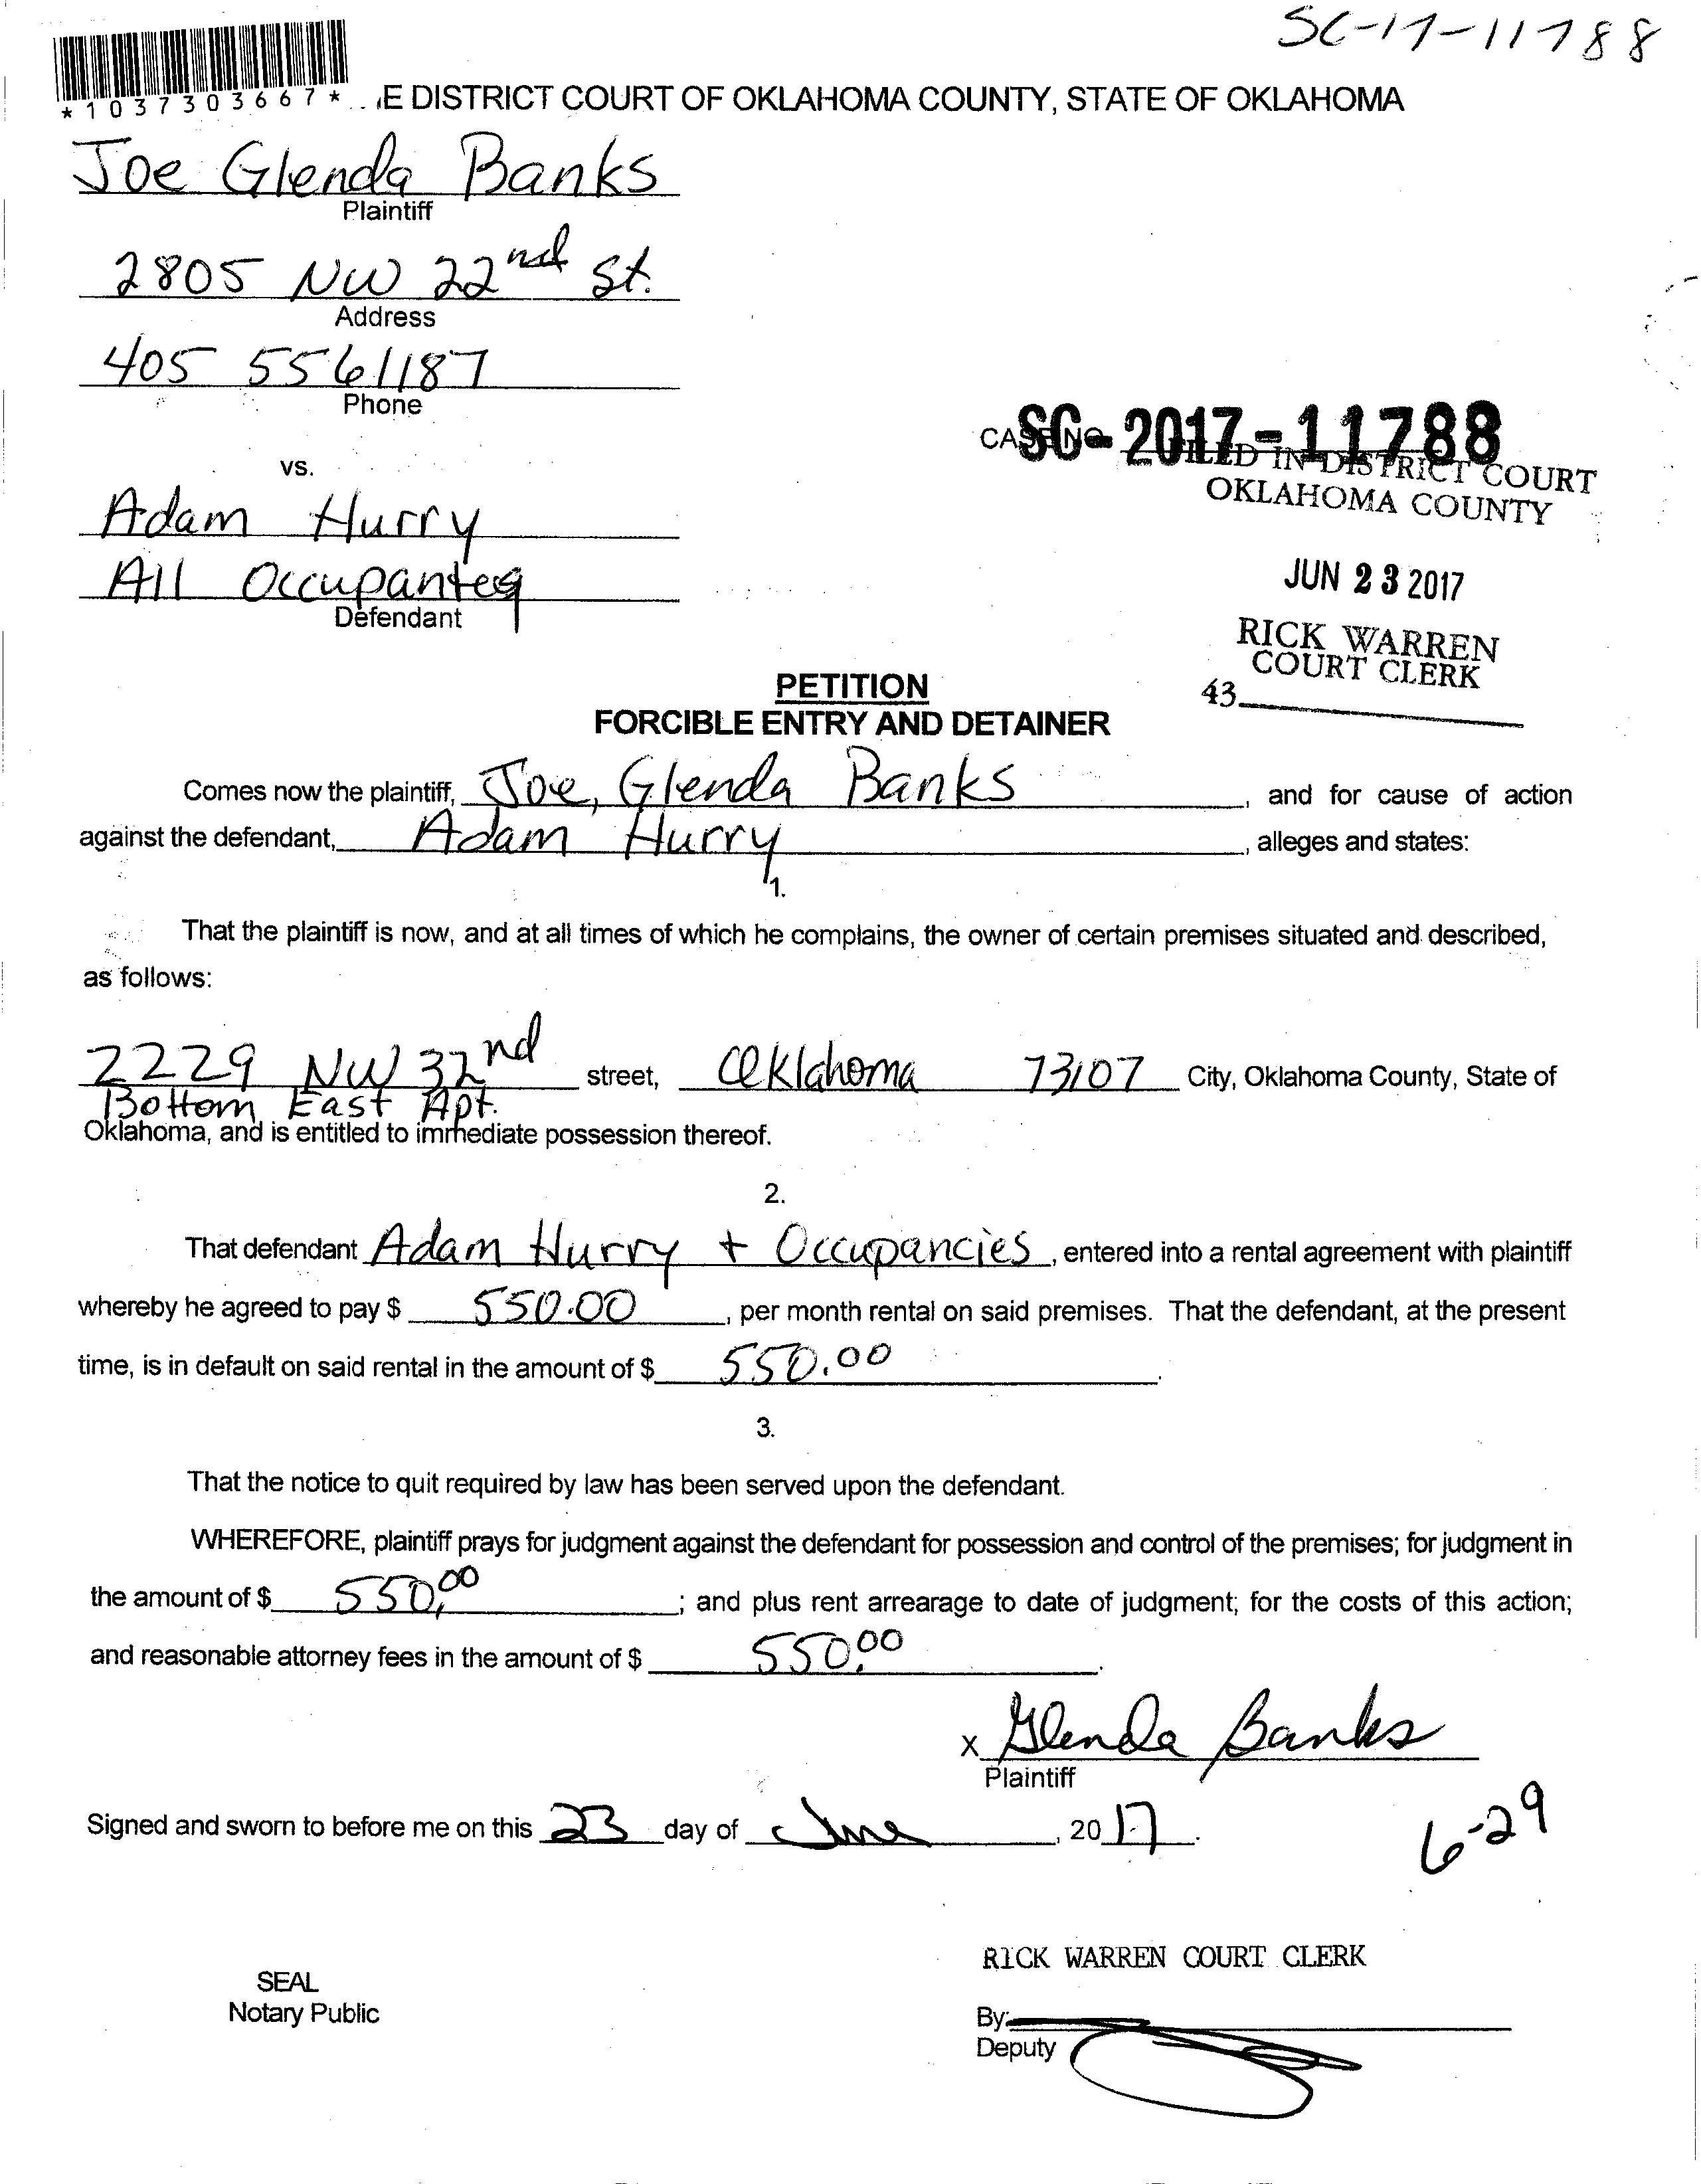 SC-17-11788
*1037303667*
E DISTRICT COURT OF OKLAHOMA COUNTY, STATE OF OKLAHOMA
Joe Glenda Banks
Plaintiff
2805 NW 22nd St.
Address
405 5561187
Phone
CASE NO. SC-2017-11788
FILED IN DISTRICT COURT
OKLAHOMA COUNTY
vs.
Adam Hurry
All Occupantes
Defendant
JUN 23 2017
RICK WARREN
COURT CLERK
43
PETITION
FORCIBLE ENTRY AND DETAINER
Comes now the plaintiff, Joe, Glenda Banks, and for cause of action
against the defendant, Adam Hurry, alleges and states:
1.
That the plaintiff is now, and at all times of which he complains, the owner of certain premises situated and described,
as follows:
2229 NW 32nd street, Oklahoma 73107 City, Oklahoma County, State of
Bottom East Apt.
Oklahoma, and is entitled to immediate possession thereof.
2.
That defendant Adam Hurry + Occupancies, entered into a rental agreement with plaintiff
whereby he agreed to pay $ 550.00, per month rental on said premises. That the defendant, at the present
time, is in default on said rental in the amount of $ 550.00.
3.
That the notice to quit required by law has been served upon the defendant.
WHEREFORE, plaintiff prays for judgment against the defendant for possession and control of the premises; for judgment in
the amount of $ 550.00; and plus rent arrearage to date of judgment; for the costs of this action;
and reasonable attorney fees in the amount of $ 550.00.
X Glenda Banks
Plaintiff
Signed and sworn to before me on this 23 day of June, 2017.
6-29
RICK WARREN COURT CLERK
SEAL
Notary Public
By:
Deputy